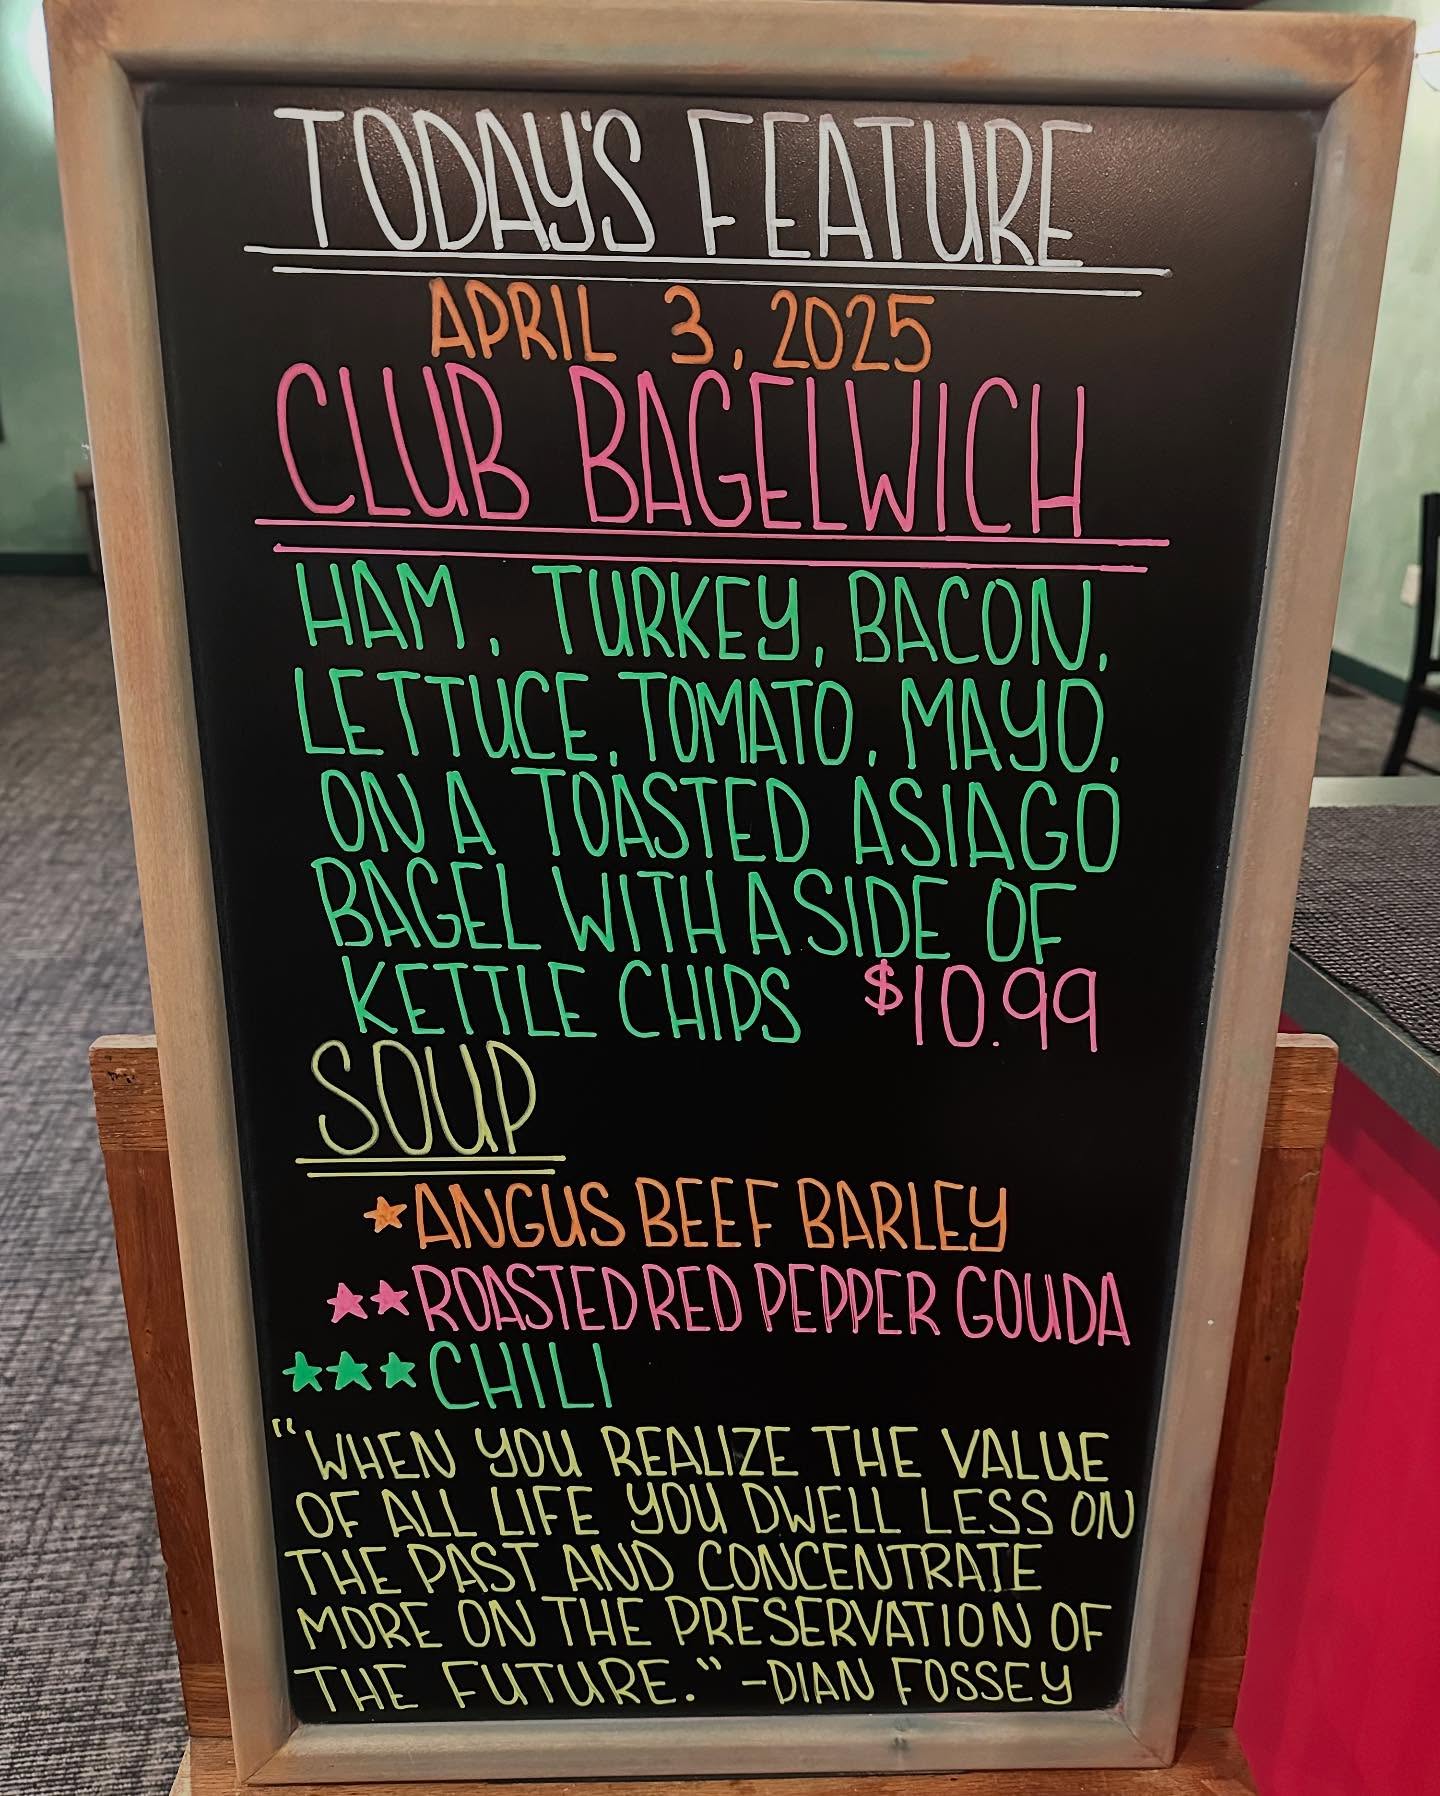 TODAY'S FEATURE
APRIL 3, 2025
CLUB BAGELWICH
HAM, TURKEY, BACON,
LETTUCE, TOMATO, MAYO,
ON A TOASTED ASIAGO
BAGEL WITH A SIDE OF
KETTLE CHIPS $10.99
SOUP
★ANGUS BEEF BARLEY
★★ROASTED RED PEPPER GOUDA
★★★CHILI
"WHEN YOU REALIZE THE VALUE
OF ALL LIFE YOU DWELL LESS ON
THE PAST AND CONCENTRATE
MORE ON THE PRESERVATION OF
THE FUTURE." -DIAN FOSSEY